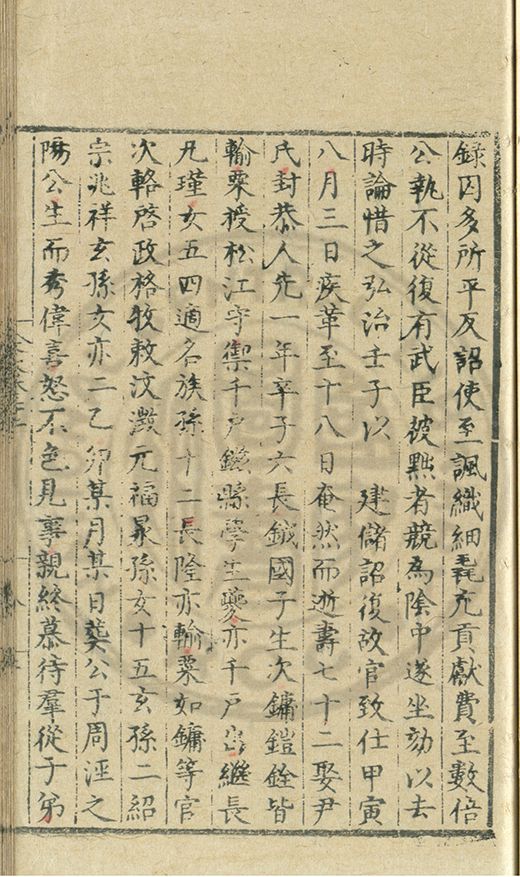 録囚多所平反詔使至諷織細毳充貢獻費至數倍
公執不從復有武臣被黜者競為陰中遂坐劾以去
時論惜之弘治壬子以　建儲詔復故官致仕甲寅
八月三日疾革至十八日奄然而逝壽七十二娶尹
氏封恭人先一年卒子六長鉞國子生次鏞鎧銓皆
輸粟授松江守禦千戶鎡縣學生夔亦千戶出繼長
兄瑾女五四適名族孫十二長隆亦輸粟如鏞等官
次輅啓政格牧敕汶瀔兀福晜孫女十五玄孫二紹
宗兆祥玄孫女亦二乙卯某月某日葬公于周涇之
陽公生而秀偉喜怒不色見事親終慕待羣從子弟